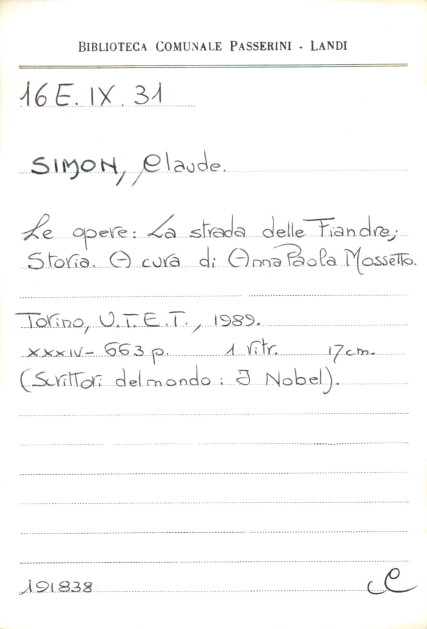 BIBLIOTECA COMUNALE PASSERINI - LANDI
16 E. IX. 31
SIMON, Claude.
Le opere: La strada delle Fiandre;
Storia. A cura di Anna Paola Mossetto.
Torino, U.T.E.T., 1989.
XXXIV- 663 p. 1 ritr. 17 cm.
(Scrittori del mondo: I Nobel).
191838